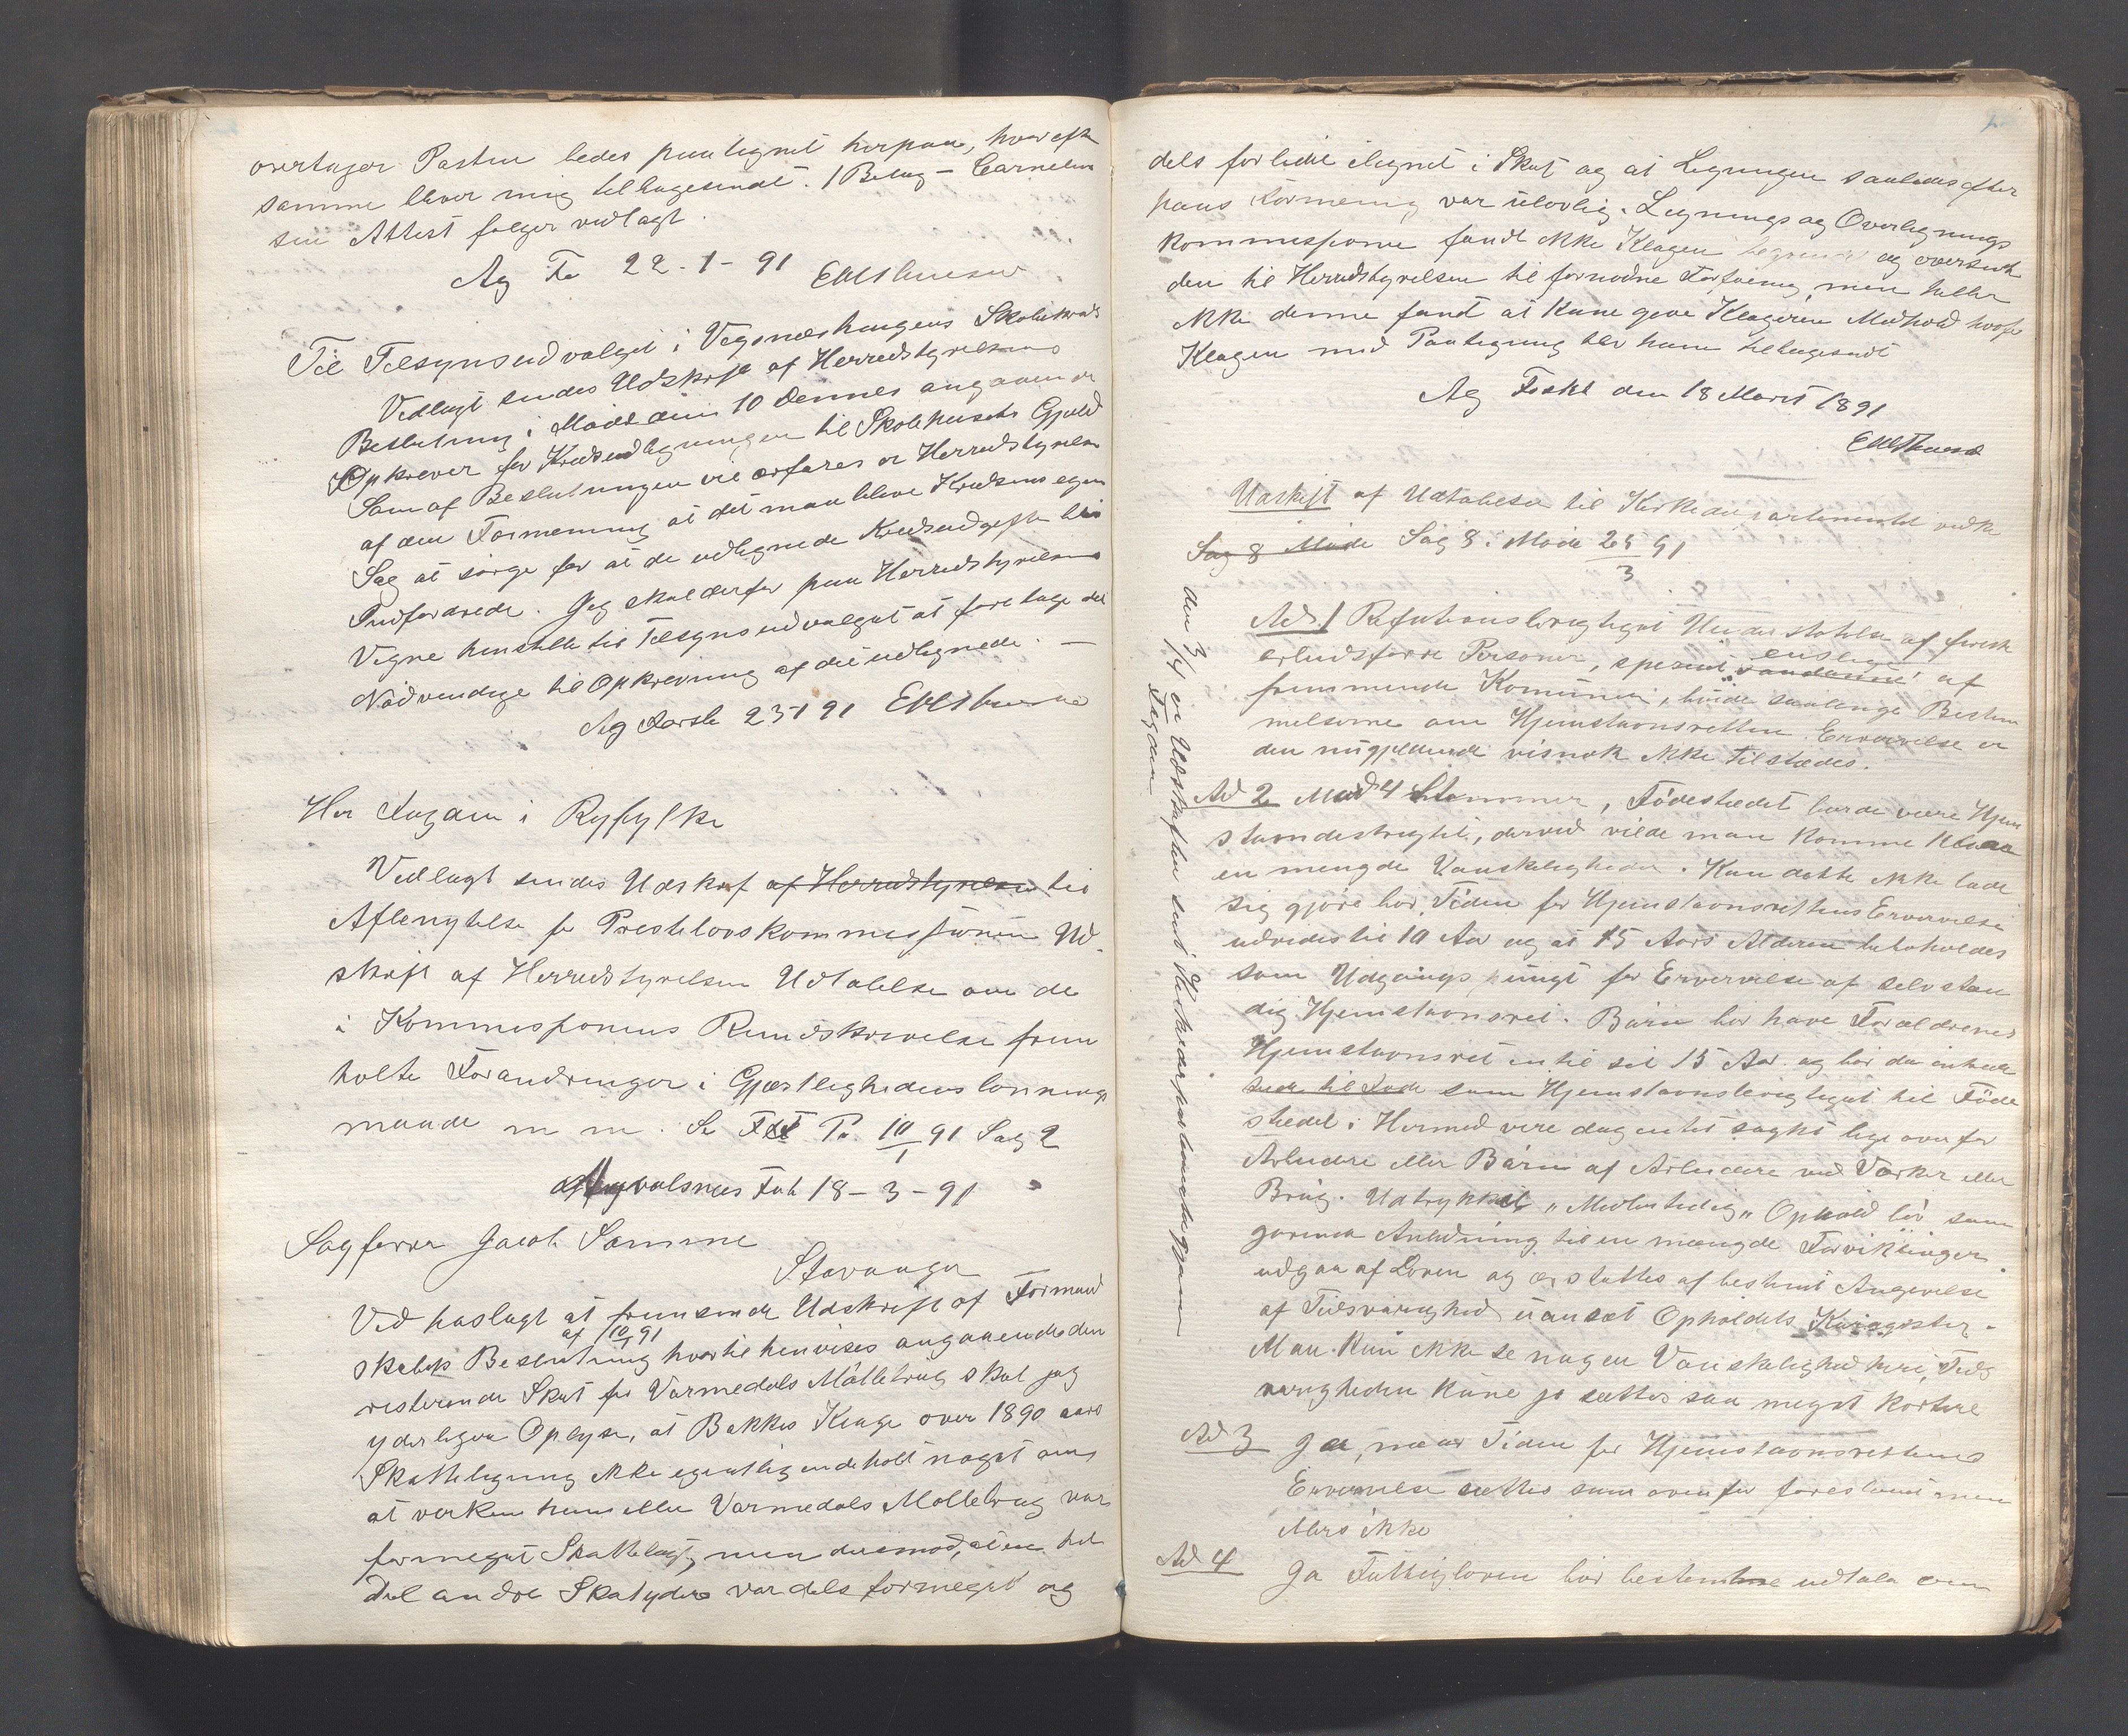 overtager Posten bedes paategnet herpaa, hvorefter
samme bliver mig tilbagesendt. 1 Bilag - Cornelius
sen Attest følger vedlagt.
Ag Fo 22-1-91
Til Tilsynsudvalget i Skolekreds
Vedlagt sendes Udskrift af Herredstyrelsens
Beslutning i Møde den 10 Dennes angaaende
Opkrever for Kredsudligningen til Skolehusets Gjæld
Som af Beslutningen vil erfares er Herredstyrelsen
af den Formening at det maa blive Kredsens egen
Sag at sørge for at de udlignede Kredsudgifter bli
Indfordrede. Jeg skal derfor paa Herredstyrelsens
Vegne henstille til Tilsynsudvalget at foretage det
Nødvendige til Opkrevning af det udlignede. —
Ag 23-1 91
Her Fogden i Ryfylke
Vedlagt sendes Udskrif af Herredstyrelsen til
Aflenytelse fr Prestelovskommissionen Ud
skrift af Herredstyrelsen Udtalelse om de
i Kommissionens Rundskrivelse frem
holte Forandringer i Gjestlighedens lønnings
maade m m. Se Po. 10/1 91 Sag 2
18-3-91
Sagførrer Jacob Sømme
Stavanger
Ved hoslagt at fremsende Udskrift af Formand
af 10/1 91
skabets Beslutning hvortil henvises angaaende den
resterende Skat for Varmedals Møllebrug skal jeg
yderligere Oplyse, at Bakkes Klage over 1890 aars
Skatteligning ikke egentlig indeholt noget om
at verken ham eller Varmedals Møllebrug var
formeget Skattelagt, men derimod, at en hel
Del andre Skatydere var dels formeget og
dels forlidet ilignet i Skat og at Ligningen saaledes efter
hans Formening var ulovlig. Lignings og Overlignings
kommissionen fandt ikke Klagen begrundet og oversendte
den til Herredstyrelsen til fornødne Forføining, men heller
ikke denne fandt at kune give Klageren Medhold hvorfor
Klagen med Paategning blev ham tilbagesendt
Ag den 18 Marts 1891
Udskrift af Udtalelse til Kirkedepartementet vedk
Sag 8 Møde Sag 8 i Møde 24/3 91
den 3/4 er Udskriften sent Kirkedepartementet gjennem
Fogden
Ad. 1 Refutionsberegtiget Understøtelse af friske
arbeidsføre Personer, specielt enslige af
fremmende Komuner, burde saalenge Bestem
melserne om Hjemstavnsrettens Ervervelse er
den nugjeldende visnok ikke tilstædes.
Ad 2 Med 4 Stemmer, Fødestedet burde være Hjem
stavndestrigtet, derved vilde man komme klar
en mengde Vanskeligheder. Kan dette ikke lade
sig gjøre bør Tiden for Hjemstavnsrettens Ervervelse
udvides til 10 Aar og at 15 Aars Alderen beholdes
som Udgangspungt for Ervervelse af selvstæn
dig Hjemstavnsret. Børn bør have Forældrenes
Hjemstavnsret intil sit 15 Aar og bør
til som Hjemstavnsberegtiget til Føde
stedet i Hermed vere dog intet sagt lige over for
Arbeidere eller Børn af Arbeidere ved Værker eller
Brug. Udtrykket „Midlertidig„ Ophold bør som
givende Anledning til en mængde Forviklinger
udgaa af Loven og erstattes af bestemt Angivelse
af Tidsvarighed uanset Opholdets
Man kan ikke se nogen Vanskelighed heri, Tids
varigheden kune jo sættes saa meget kortere
Ad 3 Ja, naar Tiden for Hjemstavnsrettens
Ervervelse sættes som ovenfor foreslaaet men
Ellers ikke
Ad 4 Ja Fattigloven bør bestemme udtale om